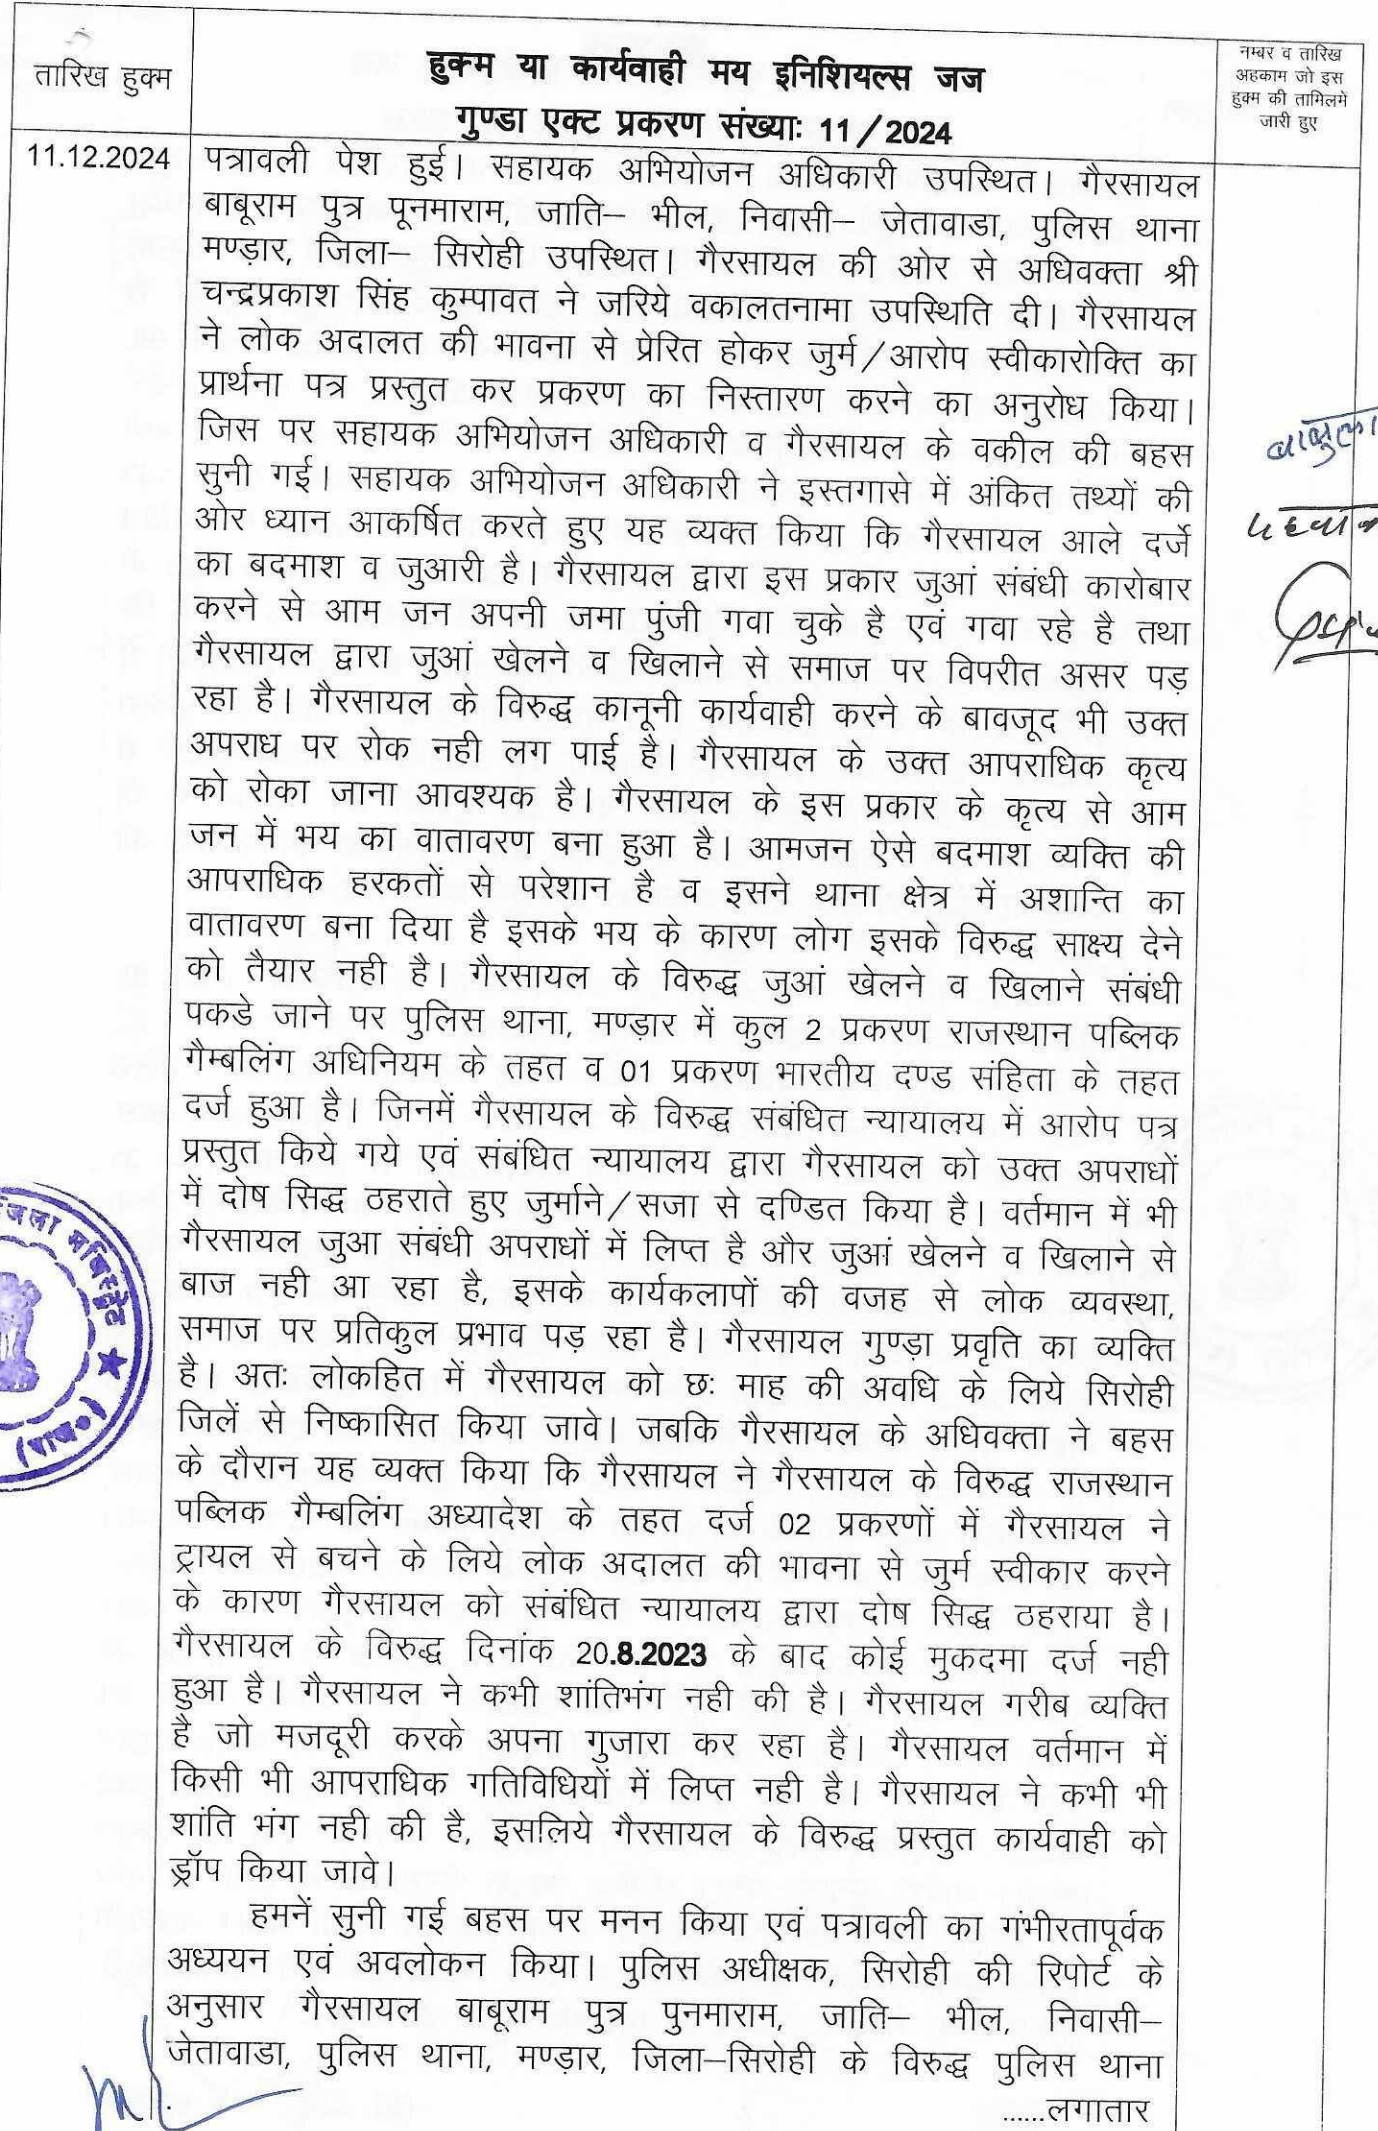 तारिख हुक्म
हुक्म या कार्यवाही मय इनिशियल्स जज
गुण्डा एक्ट प्रकरण संख्याः 11/2024
नम्बर व तारिख
अहकाम जो इस
हुक्म की तामिलमें
जारी हुए
11.12.2024
पत्रावली पेश हुई। सहायक अभियोजन अधिकारी उपस्थित। गैरसायल
बाबूराम पुत्र पूनमाराम, जाति– भील, निवासी– जेतावाडा, पुलिस थाना
मण्ड़ार, जिला– सिरोही उपस्थित। गैरसायल की ओर से अधिवक्ता श्री
चन्द्रप्रकाश सिंह कुम्पावत ने जरिये वकालतनामा उपस्थिति दी। गैरसायल
ने लोक अदालत की भावना से प्रेरित होकर जुर्म/आरोप स्वीकारोक्ति का
प्रार्थना पत्र प्रस्तुत कर प्रकरण का निस्तारण करने का अनुरोध किया।
जिस पर सहायक अभियोजन अधिकारी व गैरसायल के वकील की बहस
सुनी गई। सहायक अभियोजन अधिकारी ने इस्तगासे में अंकित तथ्यों की
ओर ध्यान आकर्षित करते हुए यह व्यक्त किया कि गैरसायल आले दर्जे
का बदमाश व जुआरी है। गैरसायल द्वारा इस प्रकार जुआं संबंधी कारोबार
करने से आम जन अपनी जमा पुंजी गवा चुके है एवं गवा रहे है तथा
गैरसायल द्वारा जुआं खेलने व खिलाने से समाज पर विपरीत असर पड़
रहा है। गैरसायल के विरुद्ध कानूनी कार्यवाही करने के बावजूद भी उक्त
अपराध पर रोक नही लग पाई है। गैरसायल के उक्त आपराधिक कृत्य
को रोका जाना आवश्यक है। गैरसायल के इस प्रकार के कृत्य से आम
जन में भय का वातावरण बना हुआ है। आमजन ऐसे बदमाश व्यक्ति की
आपराधिक हरकतों से परेशान है व इसने थाना क्षेत्र में अशान्ति का
वातावरण बना दिया है इसके भय के कारण लोग इसके विरुद्ध साक्ष्य देने
को तैयार नही है। गैरसायल के विरुद्ध जुआं खेलने व खिलाने संबंधी
पकडे जाने पर पुलिस थाना, मण्ड़ार में कुल 2 प्रकरण राजस्थान पब्लिक
गैम्बलिंग अधिनियम के तहत व 01 प्रकरण भारतीय दण्ड संहिता के तहत
दर्ज हुआ है। जिनमें गैरसायल के विरुद्ध संबंधित न्यायालय में आरोप पत्र
प्रस्तुत किये गये एवं संबंधित न्यायालय द्वारा गैरसायल को उक्त अपराधों
में दोष सिद्ध ठहराते हुए जुर्माने/सजा से दण्डित किया है। वर्तमान में भी
गैरसायल जुआ संबंधी अपराधों में लिप्त है और जुआं खेलने व खिलाने से
बाज नही आ रहा है, इसके कार्यकलापों की वजह से लोक व्यवस्था,
समाज पर प्रतिकुल प्रभाव पड़ रहा है। गैरसायल गुण्ड़ा प्रवृति का व्यक्ति
है। अतः लोकहित में गैरसायल को छः माह की अवधि के लिये सिरोही
जिलें से निष्कासित किया जावे। जबकि गैरसायल के अधिवक्ता ने बहस
के दौरान यह व्यक्त किया कि गैरसायल ने गैरसायल के विरुद्ध राजस्थान
पब्लिक गैम्बलिंग अध्यादेश के तहत दर्ज 02 प्रकरणों में गैरसायल ने
ट्रायल से बचने के लिये लोक अदालत की भावना से जुर्म स्वीकार करने
के कारण गैरसायल को संबंधित न्यायालय द्वारा दोष सिद्ध ठहराया है।
गैरसायल के विरुद्ध दिनांक 20.8.2023 के बाद कोई मुकदमा दर्ज नही
हुआ है। गैरसायल ने कभी शांतिभंग नही की है। गैरसायल गरीब व्यक्ति
है जो मजदूरी करके अपना गुजारा कर रहा है। गैरसायल वर्तमान में
किसी भी आपराधिक गतिविधियों में लिप्त नही है। गैरसायल ने कभी भी
शांति भंग नही की है, इसलिये गैरसायल के विरुद्ध प्रस्तुत कार्यवाही को
ड्रॉप किया जावे।
हमनें सुनी गई बहस पर मनन किया एवं पत्रावली का गंभीरतापूर्वक
अध्ययन एवं अवलोकन किया। पुलिस अधीक्षक, सिरोही की रिपोर्ट के
अनुसार गैरसायल बाबूराम पुत्र पुनमाराम, जाति– भील, निवासी–
जेतावाडा, पुलिस थाना, मण्ड़ार, जिला–सिरोही के विरुद्ध पुलिस थाना
......लगातार